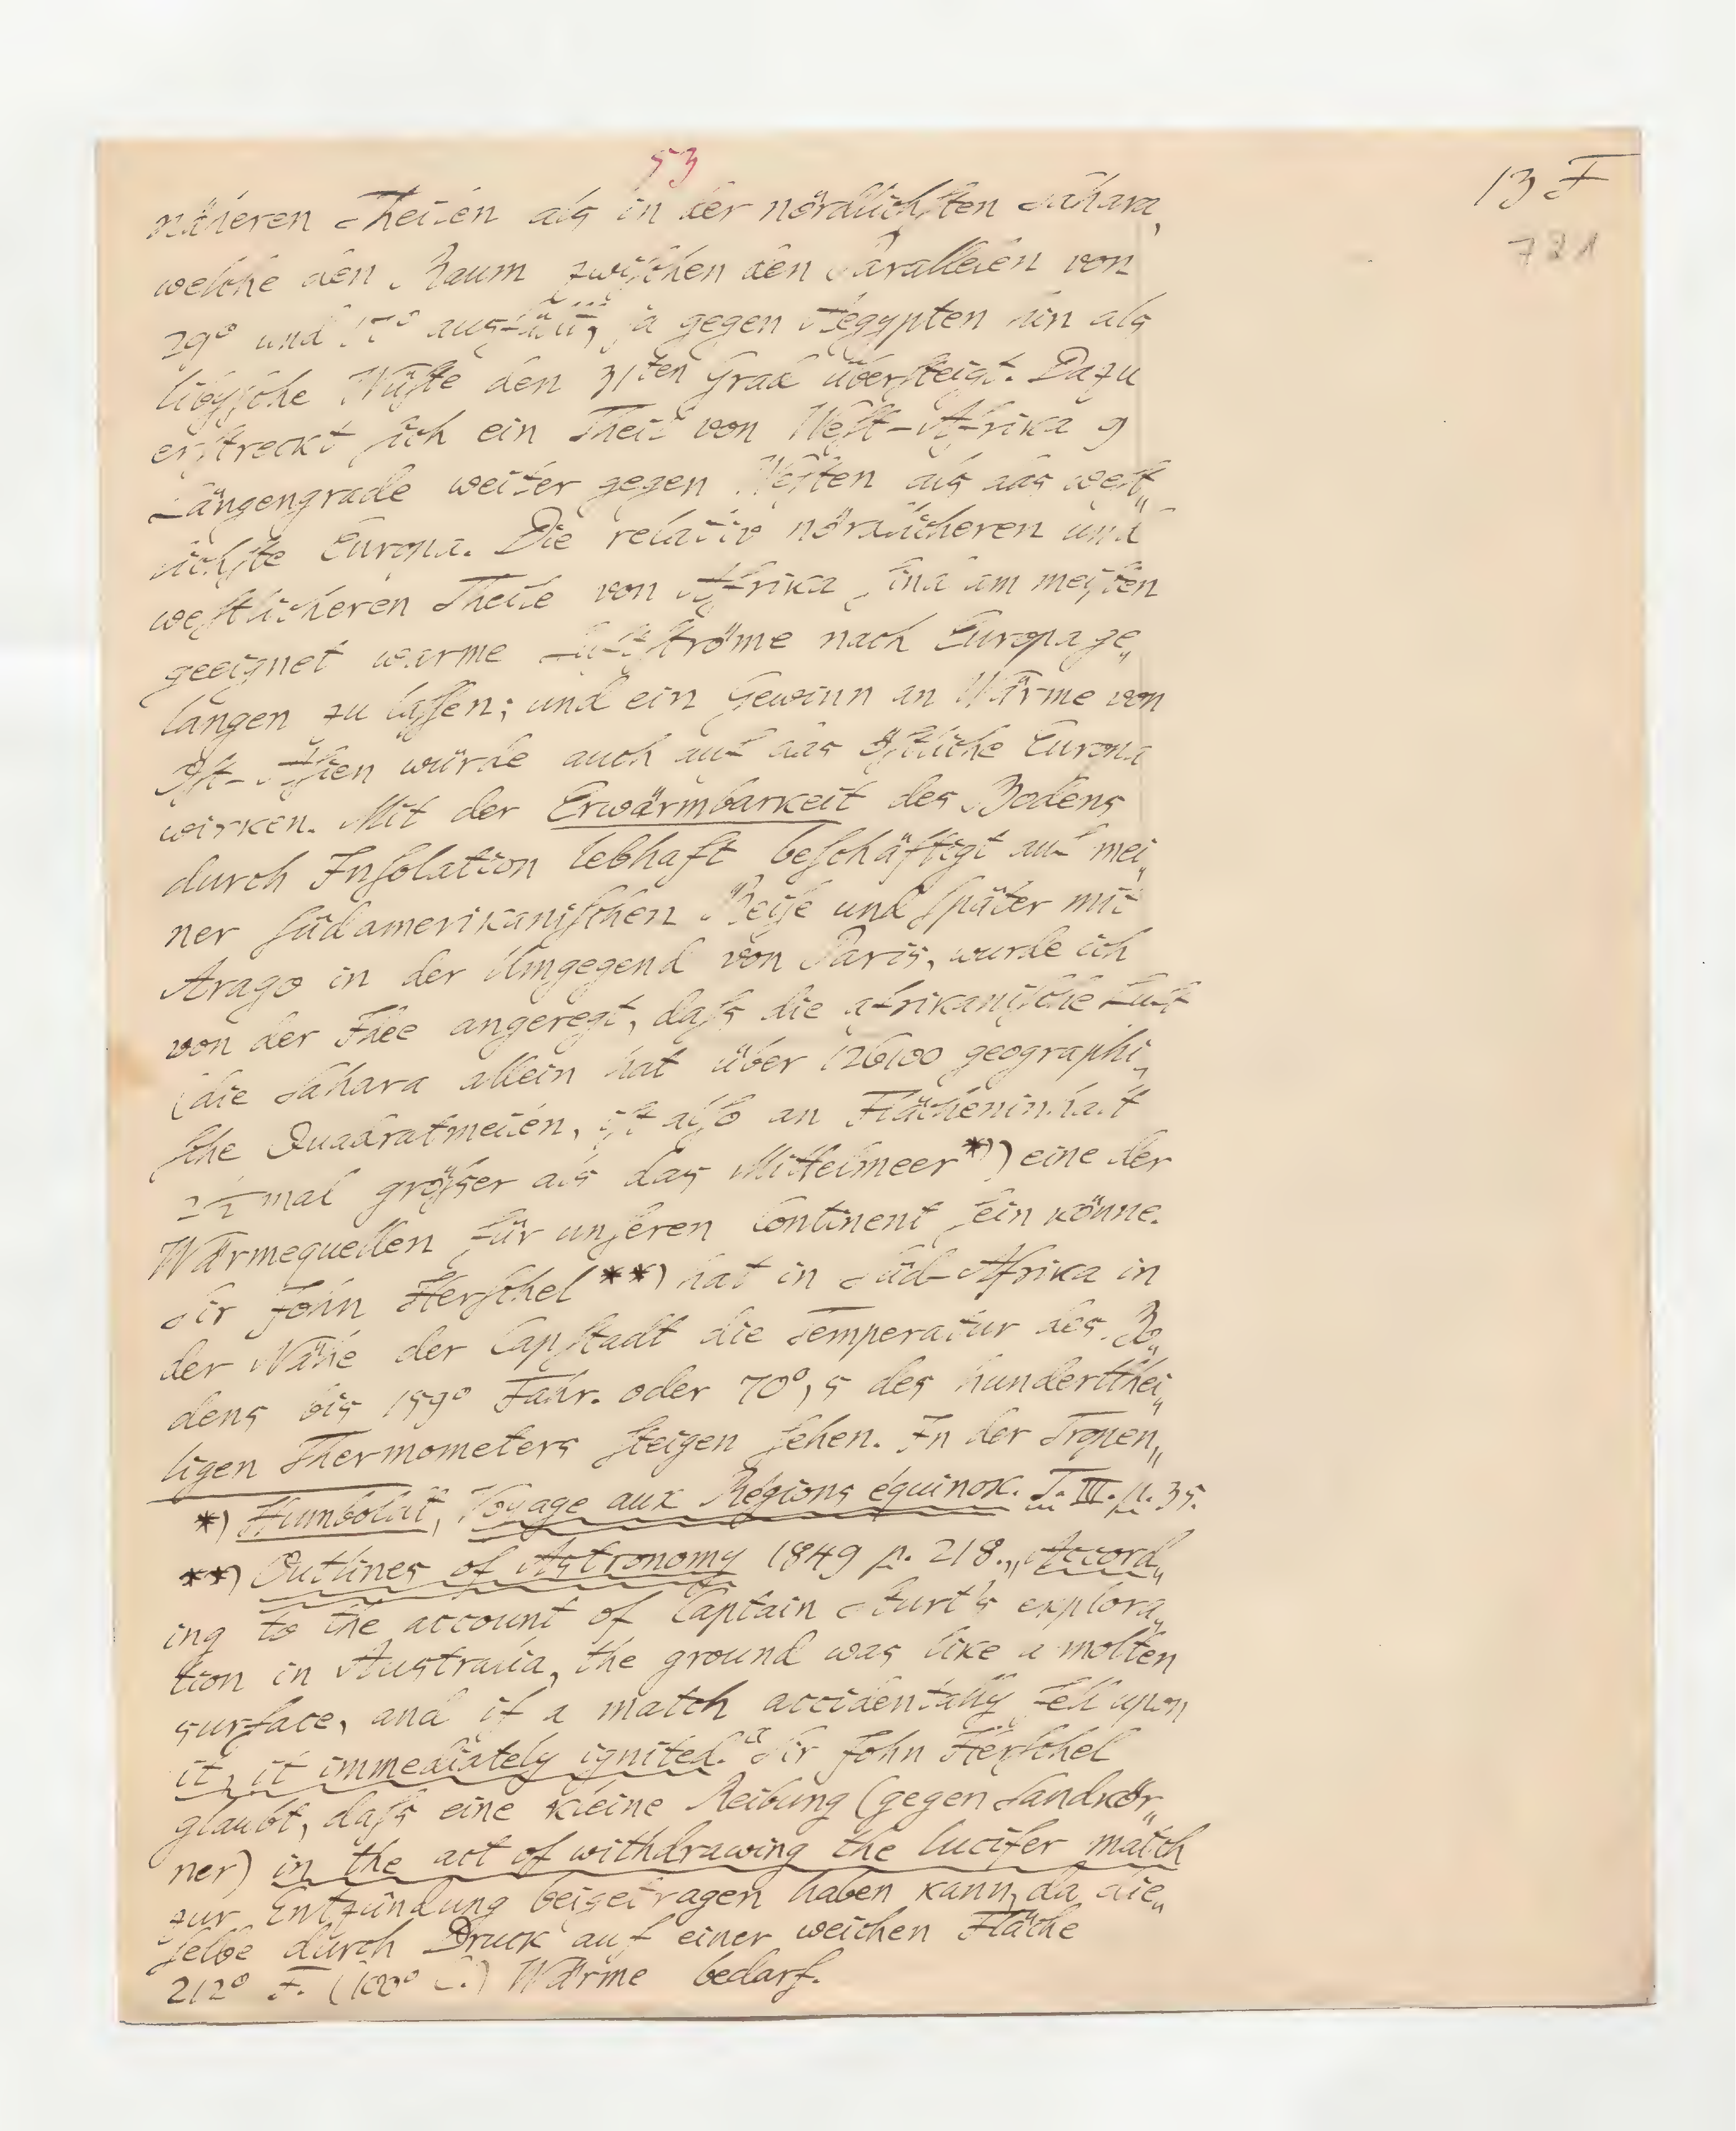 53
13 F
781
näheren Theilen als in der nördlichsten Sahara,
welche den Raum zwischen den Parallelen von
29° und 17° ausfüllt, ja gegen Aegypten hin als
libysche Wüste den 31ten Grad übersteigt. Dazu
erstreckt sich ein Theil von West-Afrika 9
Längengrade weiter gegen Westen als das west„
lichste Europa. Die relativ nördlicheren und
westlicheren Theile von Afrika sind am meisten
geeignet warme Luftströme nach Europa ge„
langen zu lassen; und ein Gewinn an Wärme von
Ost-Asien würde auch auf das östliche Europa
wirken. Mit der Erwärmbarkeit des Bodens
durch Insolation lebhaft beschäftigt auf mei„
ner südamerikanischen Reise und später mit
Arago in der Umgegend von Paris, wurde ich
von der Idee angeregt, dass die afrikanische Luft
(die Sahara allein hat über 126100 geographi„
sche Quadratmeilen, ist also an Flächeninhalt
2½ mal größer als das Mittelmeer*)) eine der
Wärmequellen für unseren Continent sein könne.
Sir John Herschel**) hat in Süd-Afrika in
der Nähe der Capstadt die Temperatur des Bo„
dens bis 159° Fahr. oder 70°,5 des hundertthei„
ligen Thermometers steigen sehen. In der Tropen„
*) Humboldt, Voyage aux Régions équinox. T. III. p. 35.
**) Outlines of Astronomy 1849 p. 218. „Accord„
ing to the account of Captain Sturt's explora„
tion in Australia, the ground was like a molten
surface, and if a match accidentally fell upon
it, it immediately ignited.“ Sir John Herschel
glaubt, dass eine kleine Reibung (gegen Sandkör„
ner) in the act of withdrawing the lucifer match
zur Entzündung beigetragen haben kann, da die„
selbe durch Druck auf einer weichen Fläche
212° F. (100° C.) Wärme bedarf.